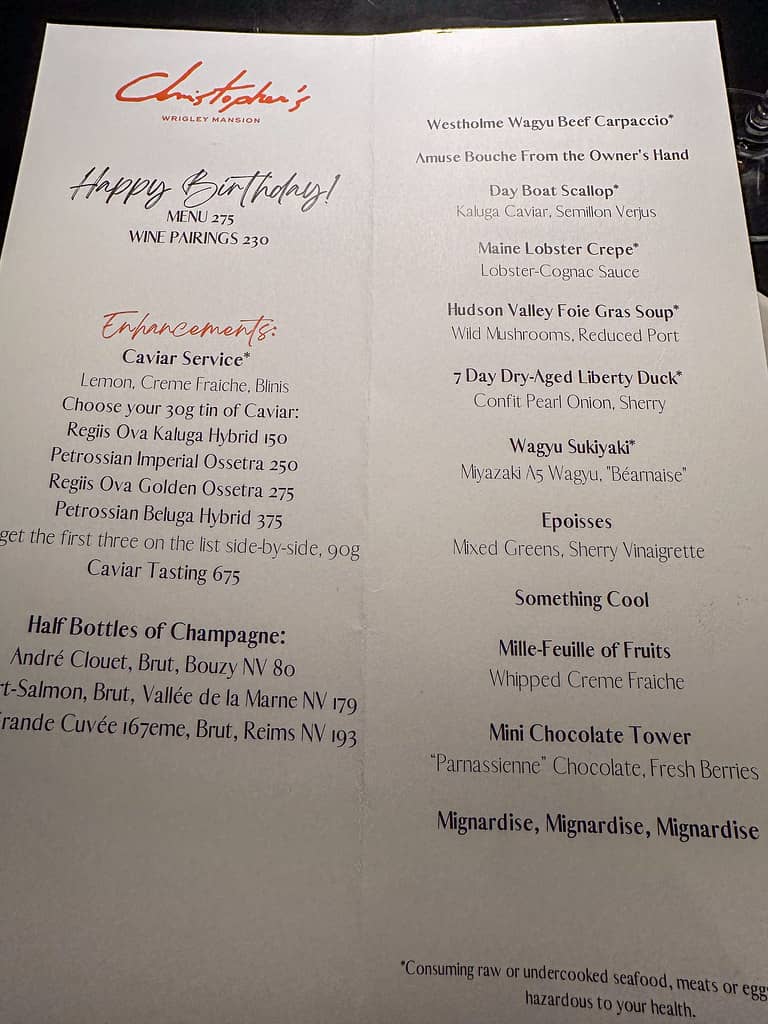 Christopher's
WRIGLEY MANSION
Happy Birthday!
MENU 275
WINE PAIRINGS 230
Enhancements:
Caviar Service*
Lemon, Creme Fraiche, Blinis
Choose your 30g tin of Caviar:
Regiis Ova Kaluga Hybrid 150
Petrossian Imperial Ossetra 250
Regiis Ova Golden Ossetra 275
Petrossian Beluga Hybrid 375
get the first three on the list side-by-side, 90g
Caviar Tasting 675
Half Bottles of Champagne:
André Clouet, Brut, Bouzy NV 80
rt-Salmon, Brut, Vallée de la Marne NV 179
Grande Cuvée 167eme, Brut, Reims NV 193
Westholme Wagyu Beef Carpaccio*
Amuse Bouche From the Owner's Hand
Day Boat Scallop*
Kaluga Caviar, Semillon Verjus
Maine Lobster Crepe*
Lobster-Cognac Sauce
Hudson Valley Foie Gras Soup*
Wild Mushrooms, Reduced Port
7 Day Dry-Aged Liberty Duck*
Confit Pearl Onion, Sherry
Wagyu Sukiyaki*
Miyazaki A5 Wagyu, "Béarnaise"
Epoisses
Mixed Greens, Sherry Vinaigrette
Something Cool
Mille-Feuille of Fruits
Whipped Creme Fraiche
Mini Chocolate Tower
“Parnassienne” Chocolate, Fresh Berries
Mignardise, Mignardise, Mignardise
*Consuming raw or undercooked seafood, meats or egg
hazardous to your health.